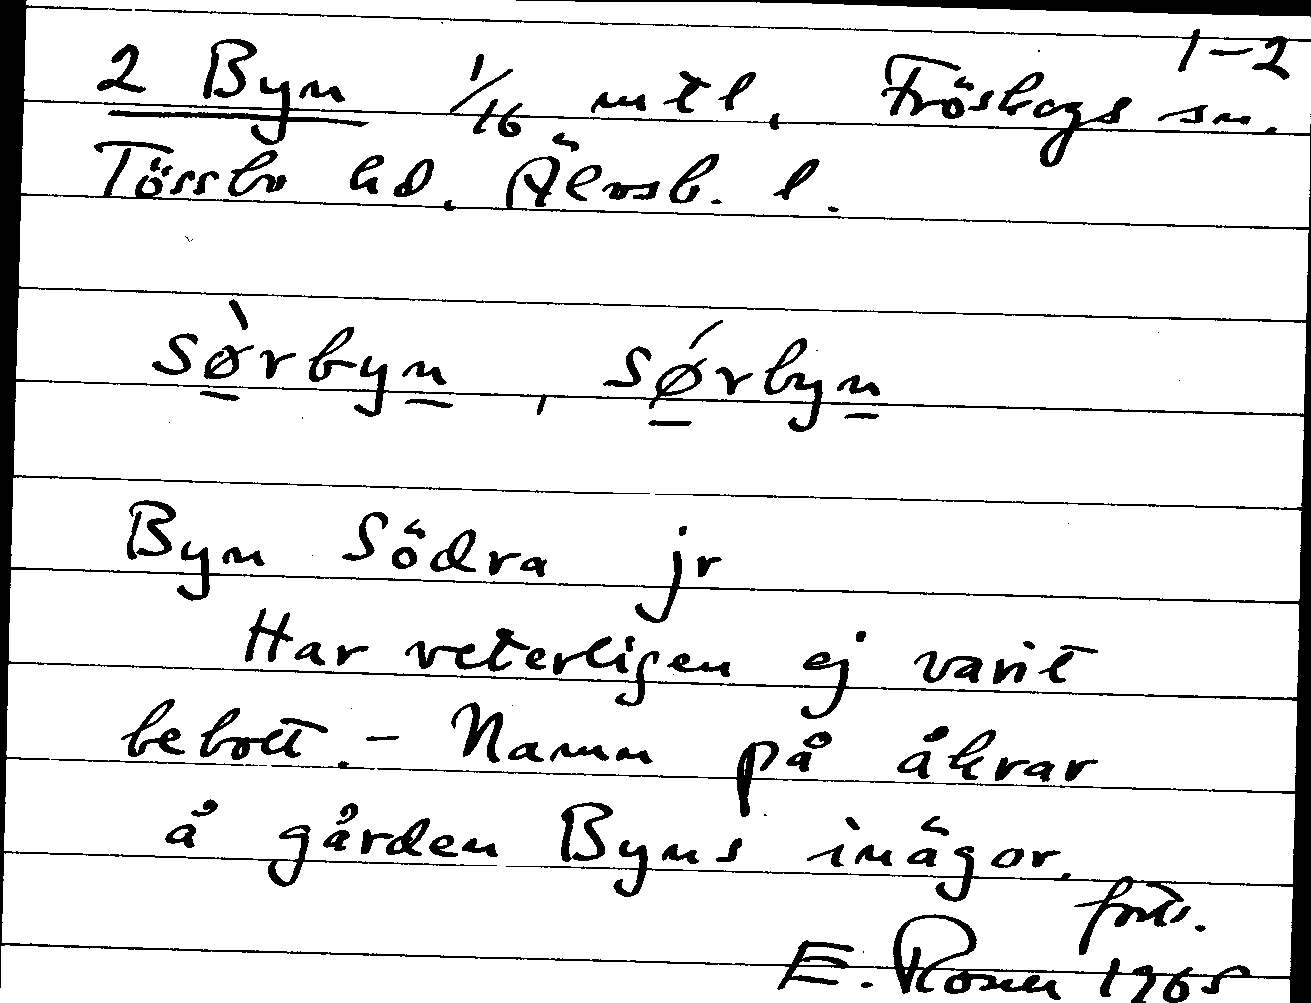 1-2
2 Byn 1/16 mtl, Fröskogs sn.
Tössbo hd. Älvsb. l.
sø̀rbyn, sǿrbyn
Byn Södra jr
Har veterligen ej varit
bebott. - Namn på åkrar
å gården Byns inägor.
forts.
E. Rosen 1965